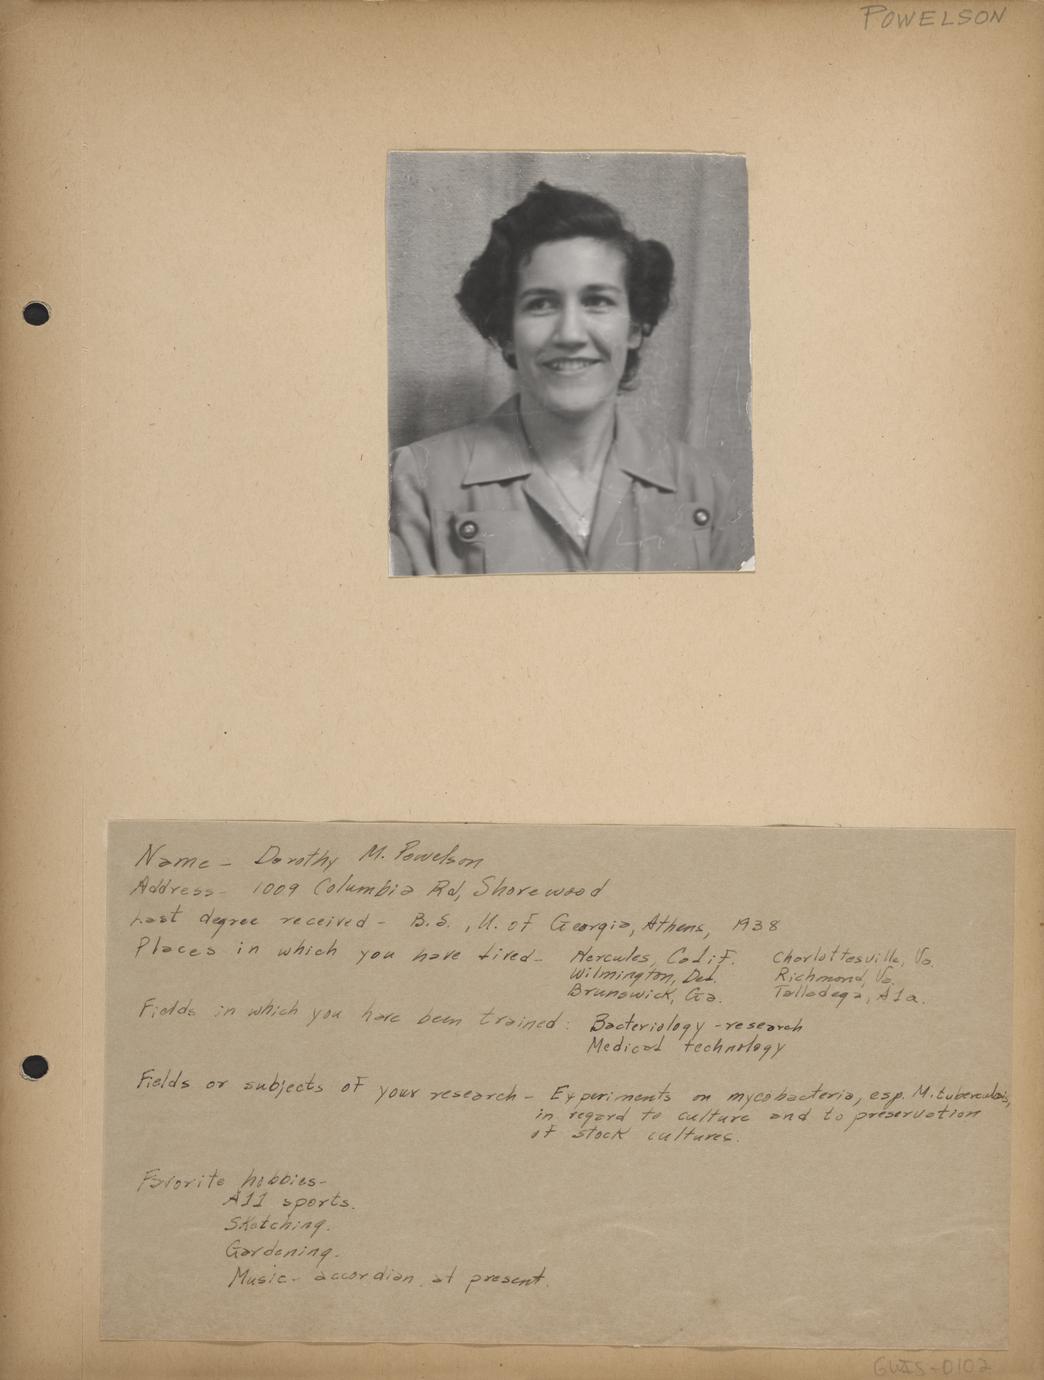 POWELSON
Name - Dorothy M. Powelson
Address - 1009 Columbia Rd, Shorewood
Last degree received - B.S., U. of Georgia, Athens, 1938
Places in which you have lived - Hercules, Calif. Charlottesville, Va.
Wilmington, Del. Richmond, Va.
Brunswick, Ga. Talladega, Ala.
Fields in which you have been trained: Bacteriology - research
Medical technology
Fields or subjects of your research - Experiments on mycobacteria, esp. M. tuberculosis,
in regard to culture and to preservation
of stock cultures.
Favorite hobbies -
All sports.
Sketching.
Gardening.
Music - accordian at present.
GWIS-0102